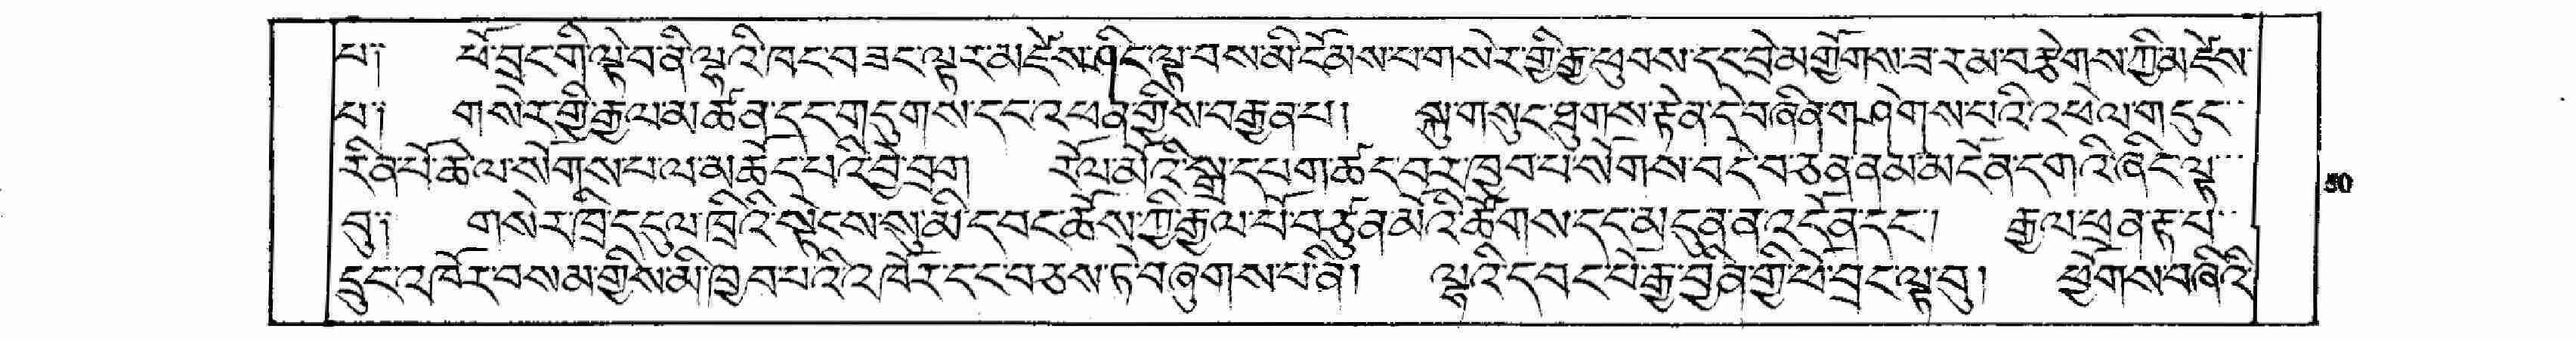 པ༎ ཕོ་བྲང་གི་ལྟེ་བ་ནི་ལྷའི་ཁང་བཟང་ལྟར་མཛེས་ཤིང་ལྟ་བས་མི་ངོམས་པ་གསེར་གྱི་རྒྱ་ཕུབས་དང་བྲེམ་གྱོགས་ཟ་ར་མ་བརྩེགས་ཀྱི་མཛེས་
པ༎ གསེར་གྱི་རྒྱལ་མཚན་དང་གདུགས་དང་འཕན་གྱིས་བརྒྱན་པ། སྐུ་གསུང་ཐུགས་རྟེན་དེ་བཞིན་གཤེགས་པའི་འཕེལ་གདུང་
རིན་པོ་ཆེ་ལ་སོགས་པ་ལ་མཆོད་པའི་བྱེ་བྲག རོལ་མོའི་སྒྲ་དཔག་ཚད་བར་ཁྱབ་པ་སོགས་བདེ་བ་ཅན་ནམ་མངོན་དགའི་ཞིང་ལྟ་
བུ༎ གསེར་ཁྲི་དངུལ་ཁྲིའི་སྟེངས་སུ་མི་དབང་ཆོས་ཀྱི་རྒྱལ་པོ་བཙུན་མོའི་ཚོགས་དང་མདུན་ན་འདོན་དང་། རྒྱལ་ཕྲན་རྟ་པ་
དྲུང་འཁོར་བསམ་གྱིས་མི་ཁྱབ་པའི་འཁོར་དང་བཅས་ཏེ་བཞུགས་པ་ནི། ལྷའི་དབང་པོ་རྒྱ་བྱིན་གྱི་ཕོ་བྲང་ལྟ་བུ། ཕྱོགས་བཞིའི་
50